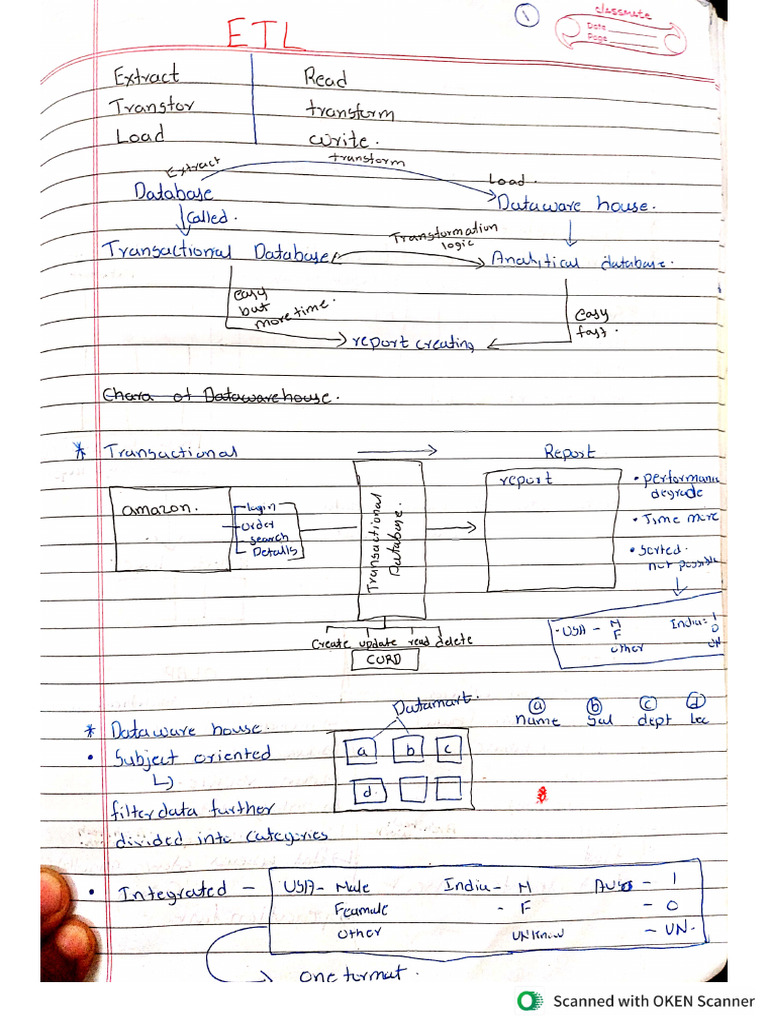 1
classmate
Date
Page
ETL
Extract Read
Transtor transform
Load write.
Extract transform Load.
Database Dataware house.
Called.
Transactional Database Transformation logic Analytical database.
easy but more time. easy fast.
report creating
Chara of Datawarehouse.
* Transactional Report
amazon.
Login
order
search
Details
Transactional Database.
report
• performance degrade
• Time more
• Sorted not possible
• USA - M India - 1
F 0
other UN
Create update read delete
CURD
* Dataware house.
Datamart.
a b c d
name Sal dept Loc
• Subject oriented
a b c
d.
filter data further
divided into categories
• Integrated - USA - Male India - M Aus - 1
Feamale - F - 0
other UNKnow - UN.
one format.
Scanned with OKEN Scanner